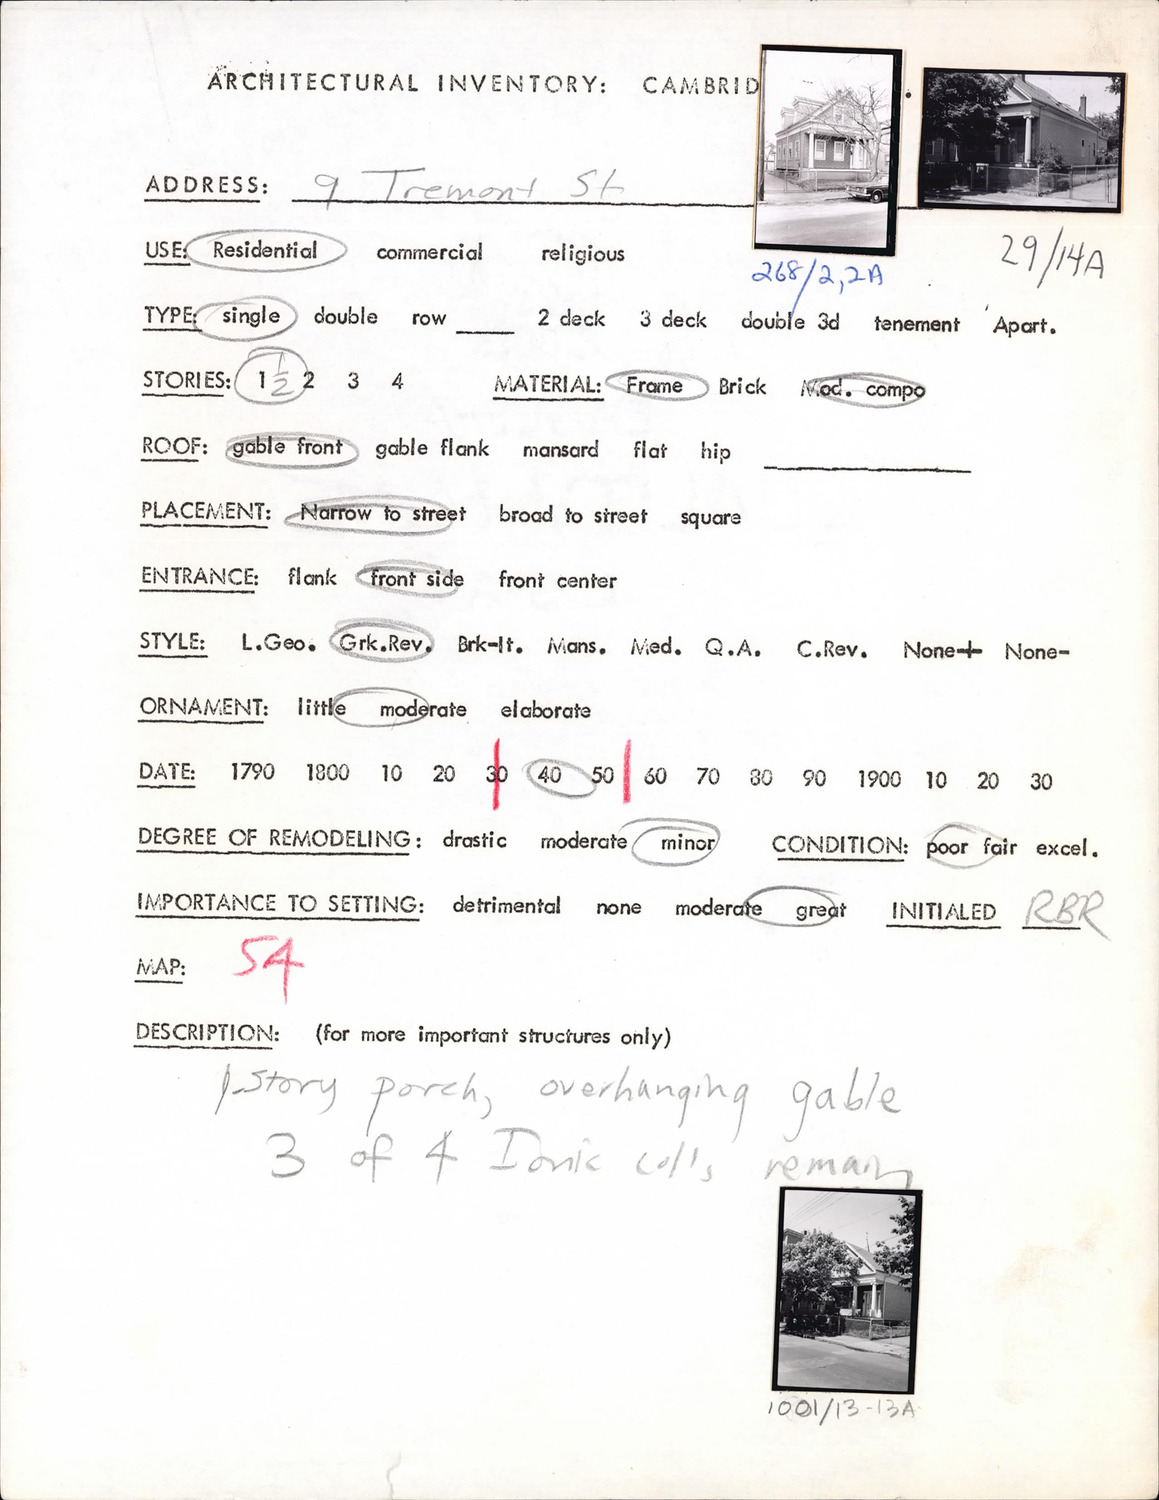 ARCHITECTURAL INVENTORY: CAMBRID
ADDRESS: 9 Tremont St
29/14A
USE: Residential commercial religious
268/2,2A
TYPE: single double row ____ 2 deck 3 deck double 3d tenement Apart.
STORIES: 1 1/2 2 3 4 MATERIAL: Frame Brick Mod. compo
ROOF: gable front gable flank mansard flat hip ____
PLACEMENT: Narrow to street broad to street square
ENTRANCE: flank front side front center
STYLE: L.Geo. Grk.Rev. Brk-It. Mans. Med. Q.A. C.Rev. None+ None-
ORNAMENT: little moderate elaborate
DATE: 1790 1800 10 20 30 40 50 60 70 80 90 1900 10 20 30
DEGREE OF REMODELING: drastic moderate minor CONDITION: poor fair excel.
IMPORTANCE TO SETTING: detrimental none moderate great INITIALED RBR
MAP: 54
DESCRIPTION: (for more important structures only)
1-Story porch, overhanging gable
3 of 4 Ionic col's remain
1001/13-13A